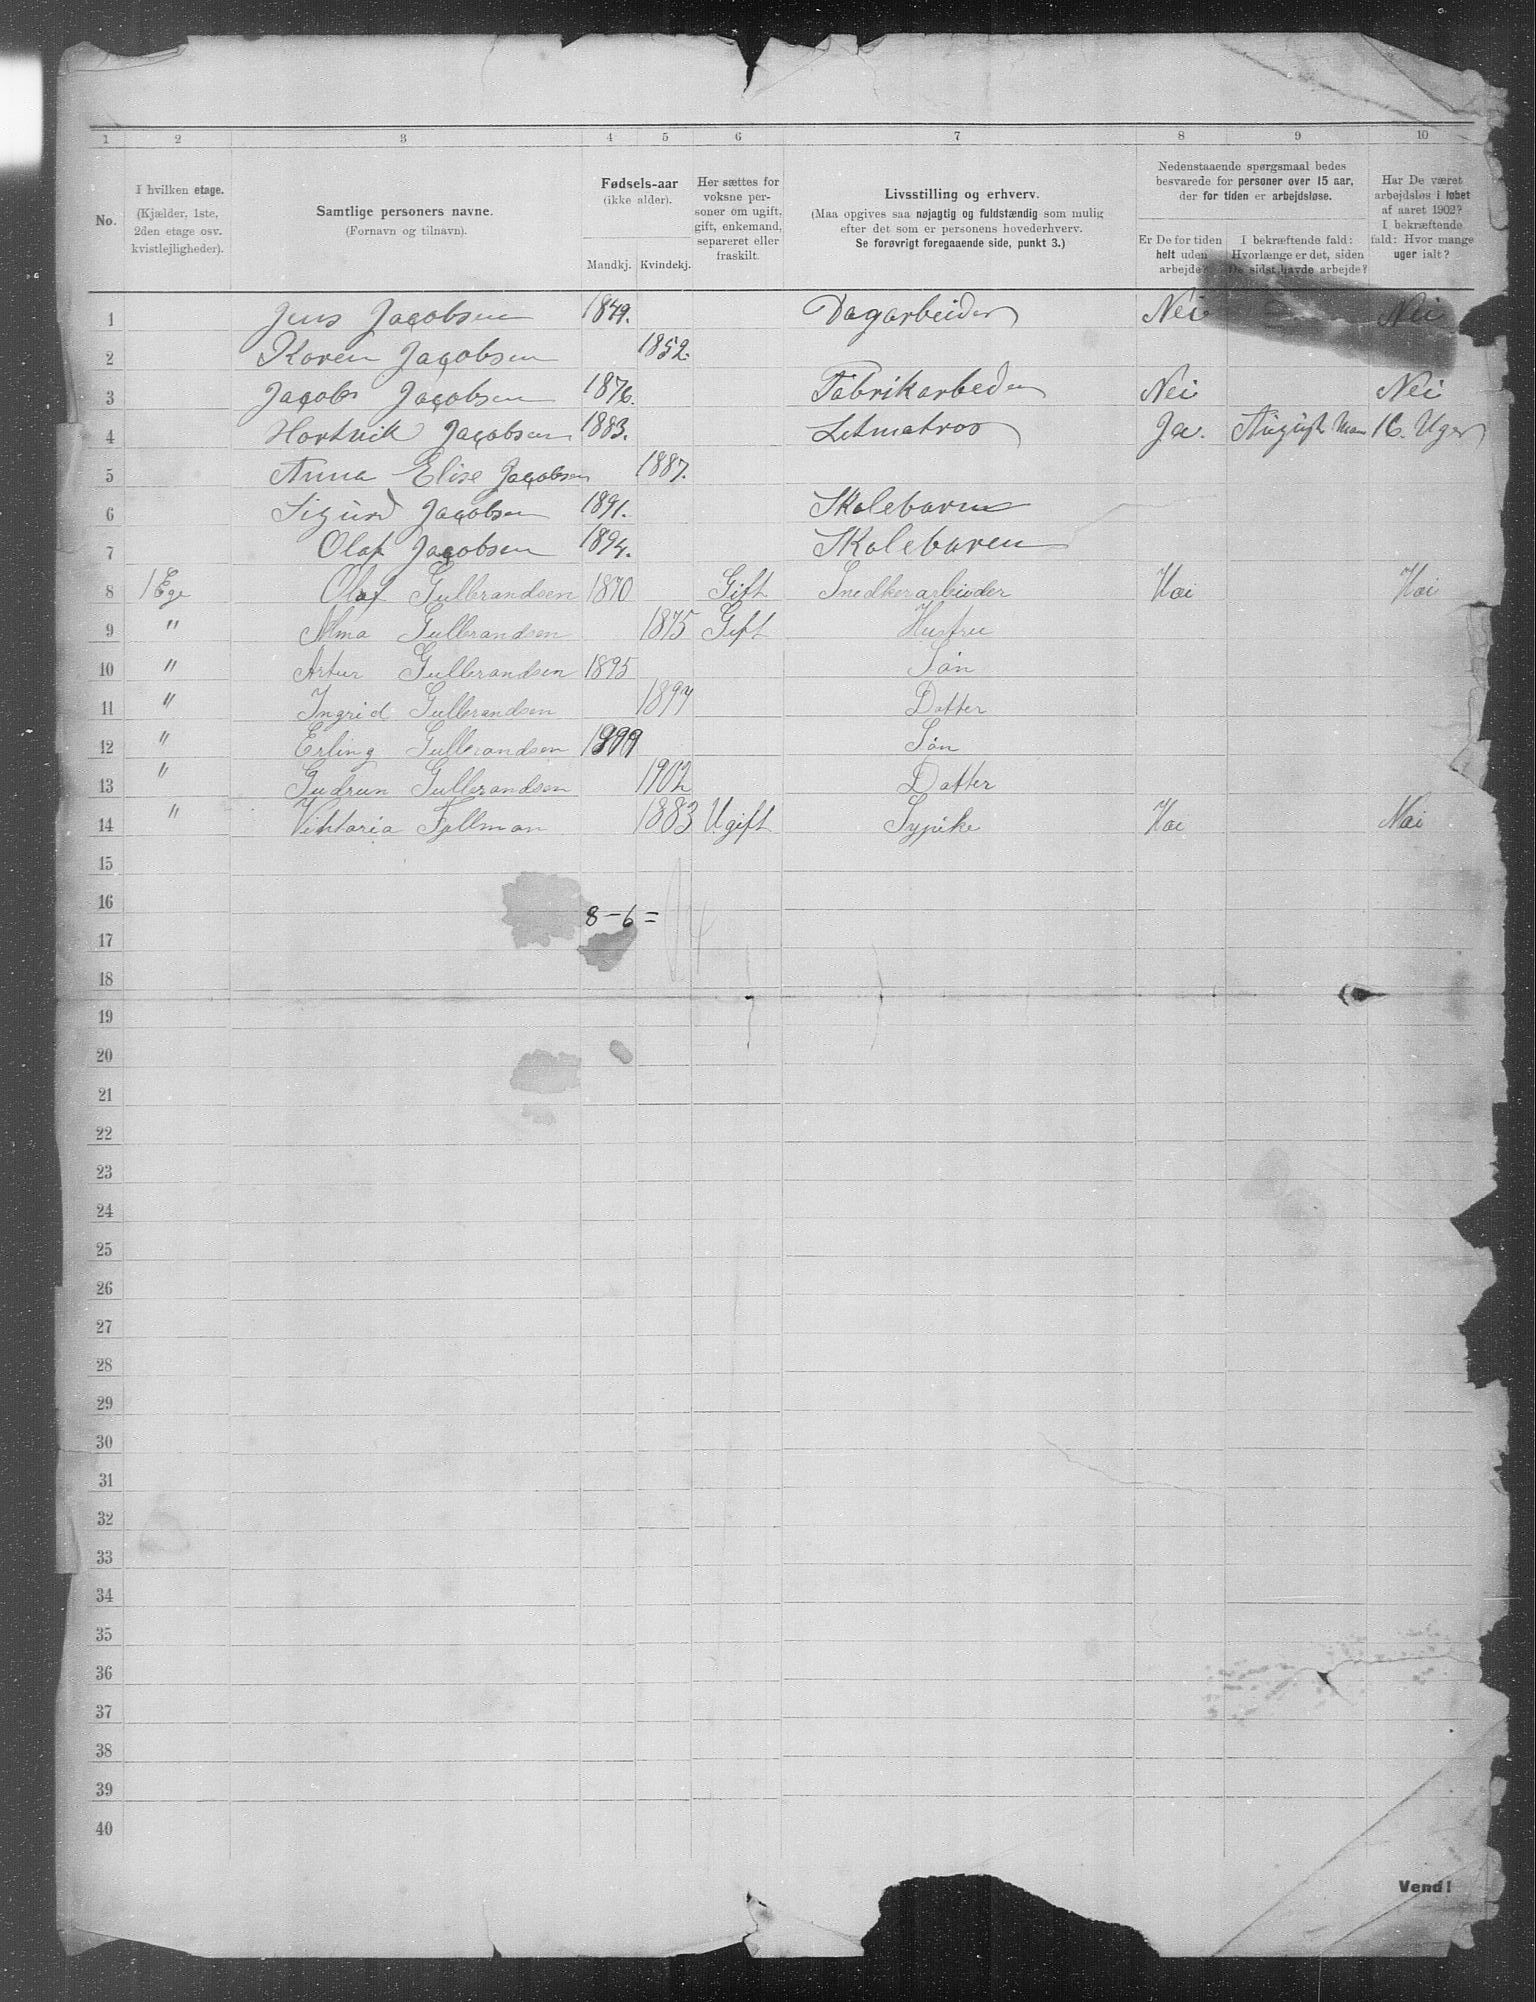 1 2 3 4 5 6 7 8 9 10
No.
I hvilken etage.
(Kjælder, 1ste,
2den etage osv.
kvistlejligheder).
Samtlige personers navne.
(Fornavn og tilnavn).
Fødsels-aar
(ikke alder).
Mandkj. Kvindekj.
Her sættes for
voksne per-
soner om ugift,
gift, enkemand,
separeret eller
fraskilt.
Livsstilling og erhverv.
(Maa opgives saa nøjagtig og fuldstændig som mulig
efter det som er personens hovederhverv.
Se forøvrigt foregaaende side, punkt 3.)
Nedenstaaende spørgsmaal bedes
besvarede for personer over 15 aar,
der for tiden er arbejdsløse.
Er De for tiden
helt uden
arbejde?
I bekræftende fald:
Hvorlænge er det, siden
De sidst havde arbejde?
Har De været
arbejdsløs i løbet
af aaret 1902?
I bekræftende
fald: Hvor mange
uger ialt?
1 Jens Jacobsen 1849. Dagarbeider Nei Nei
2 Karen Jacobsen 1852.
3 Jacob Jacobsen 1876. Fabrikarbeder Nei Nei
4 Hartvik Jacobsen 1883. Letmatros Ja. August 16. Uger
5 Anna Elise Jacobsen 1887.
6 Sigurd Jacobsen 1891. Skolebarn
7 Olaf Jacobsen 1894. Skolebaren
8 1 Ege Olaf Gulbrandsen 1870 Gift Snedkerarbieder Nei Nei
9 " Alma Gulbrandsen 1875 Gift Hustru
10 " Artur Gulbrandsen 1895 Søn
11 " Ingrid Gulbrandsen 1897 Datter
12 " Erling Gulbrandsen 1899 Søn
13 " Gudrun Gulbrandsen 1902 Datter
14 " Viktoria Fjellman 1883 Ugift Sypike Nei Nei
15
16
8-6=
17
18
19
20
21
22
23
24
25
26
27
28
29
30
31
32
33
34
35
36
37
38
39
40
Vend!